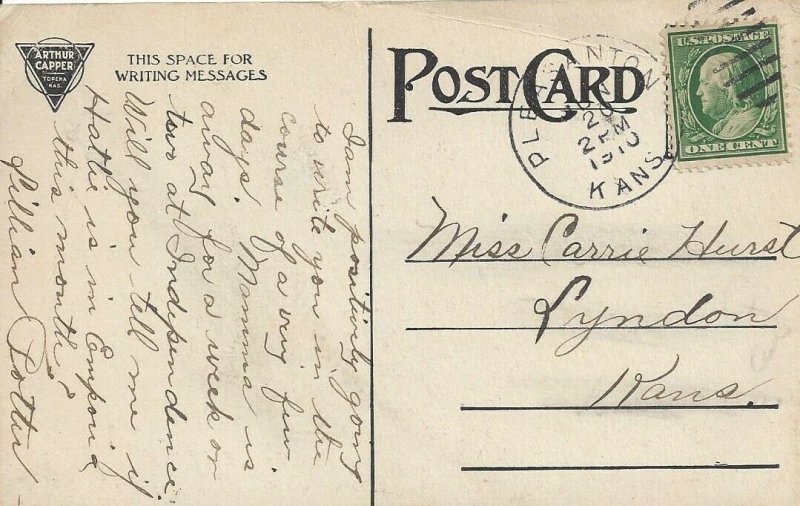 ARTHUR
CAPPER
TOPEKA
KAS.
THIS SPACE FOR
WRITING MESSAGES
POST CARD
PLEASANTON
JUN
20
2 PM
1910
KANS.
U.S. POSTAGE
ONE CENT
I am positively going
to write you in the
course of a very few
days. Mamma is
away for a week or
two at Independence.
Will you tell me if
Hattie is in Emporia
this month?
Lillian Potter
Miss Carrie Hurst
Lyndon
Kans.